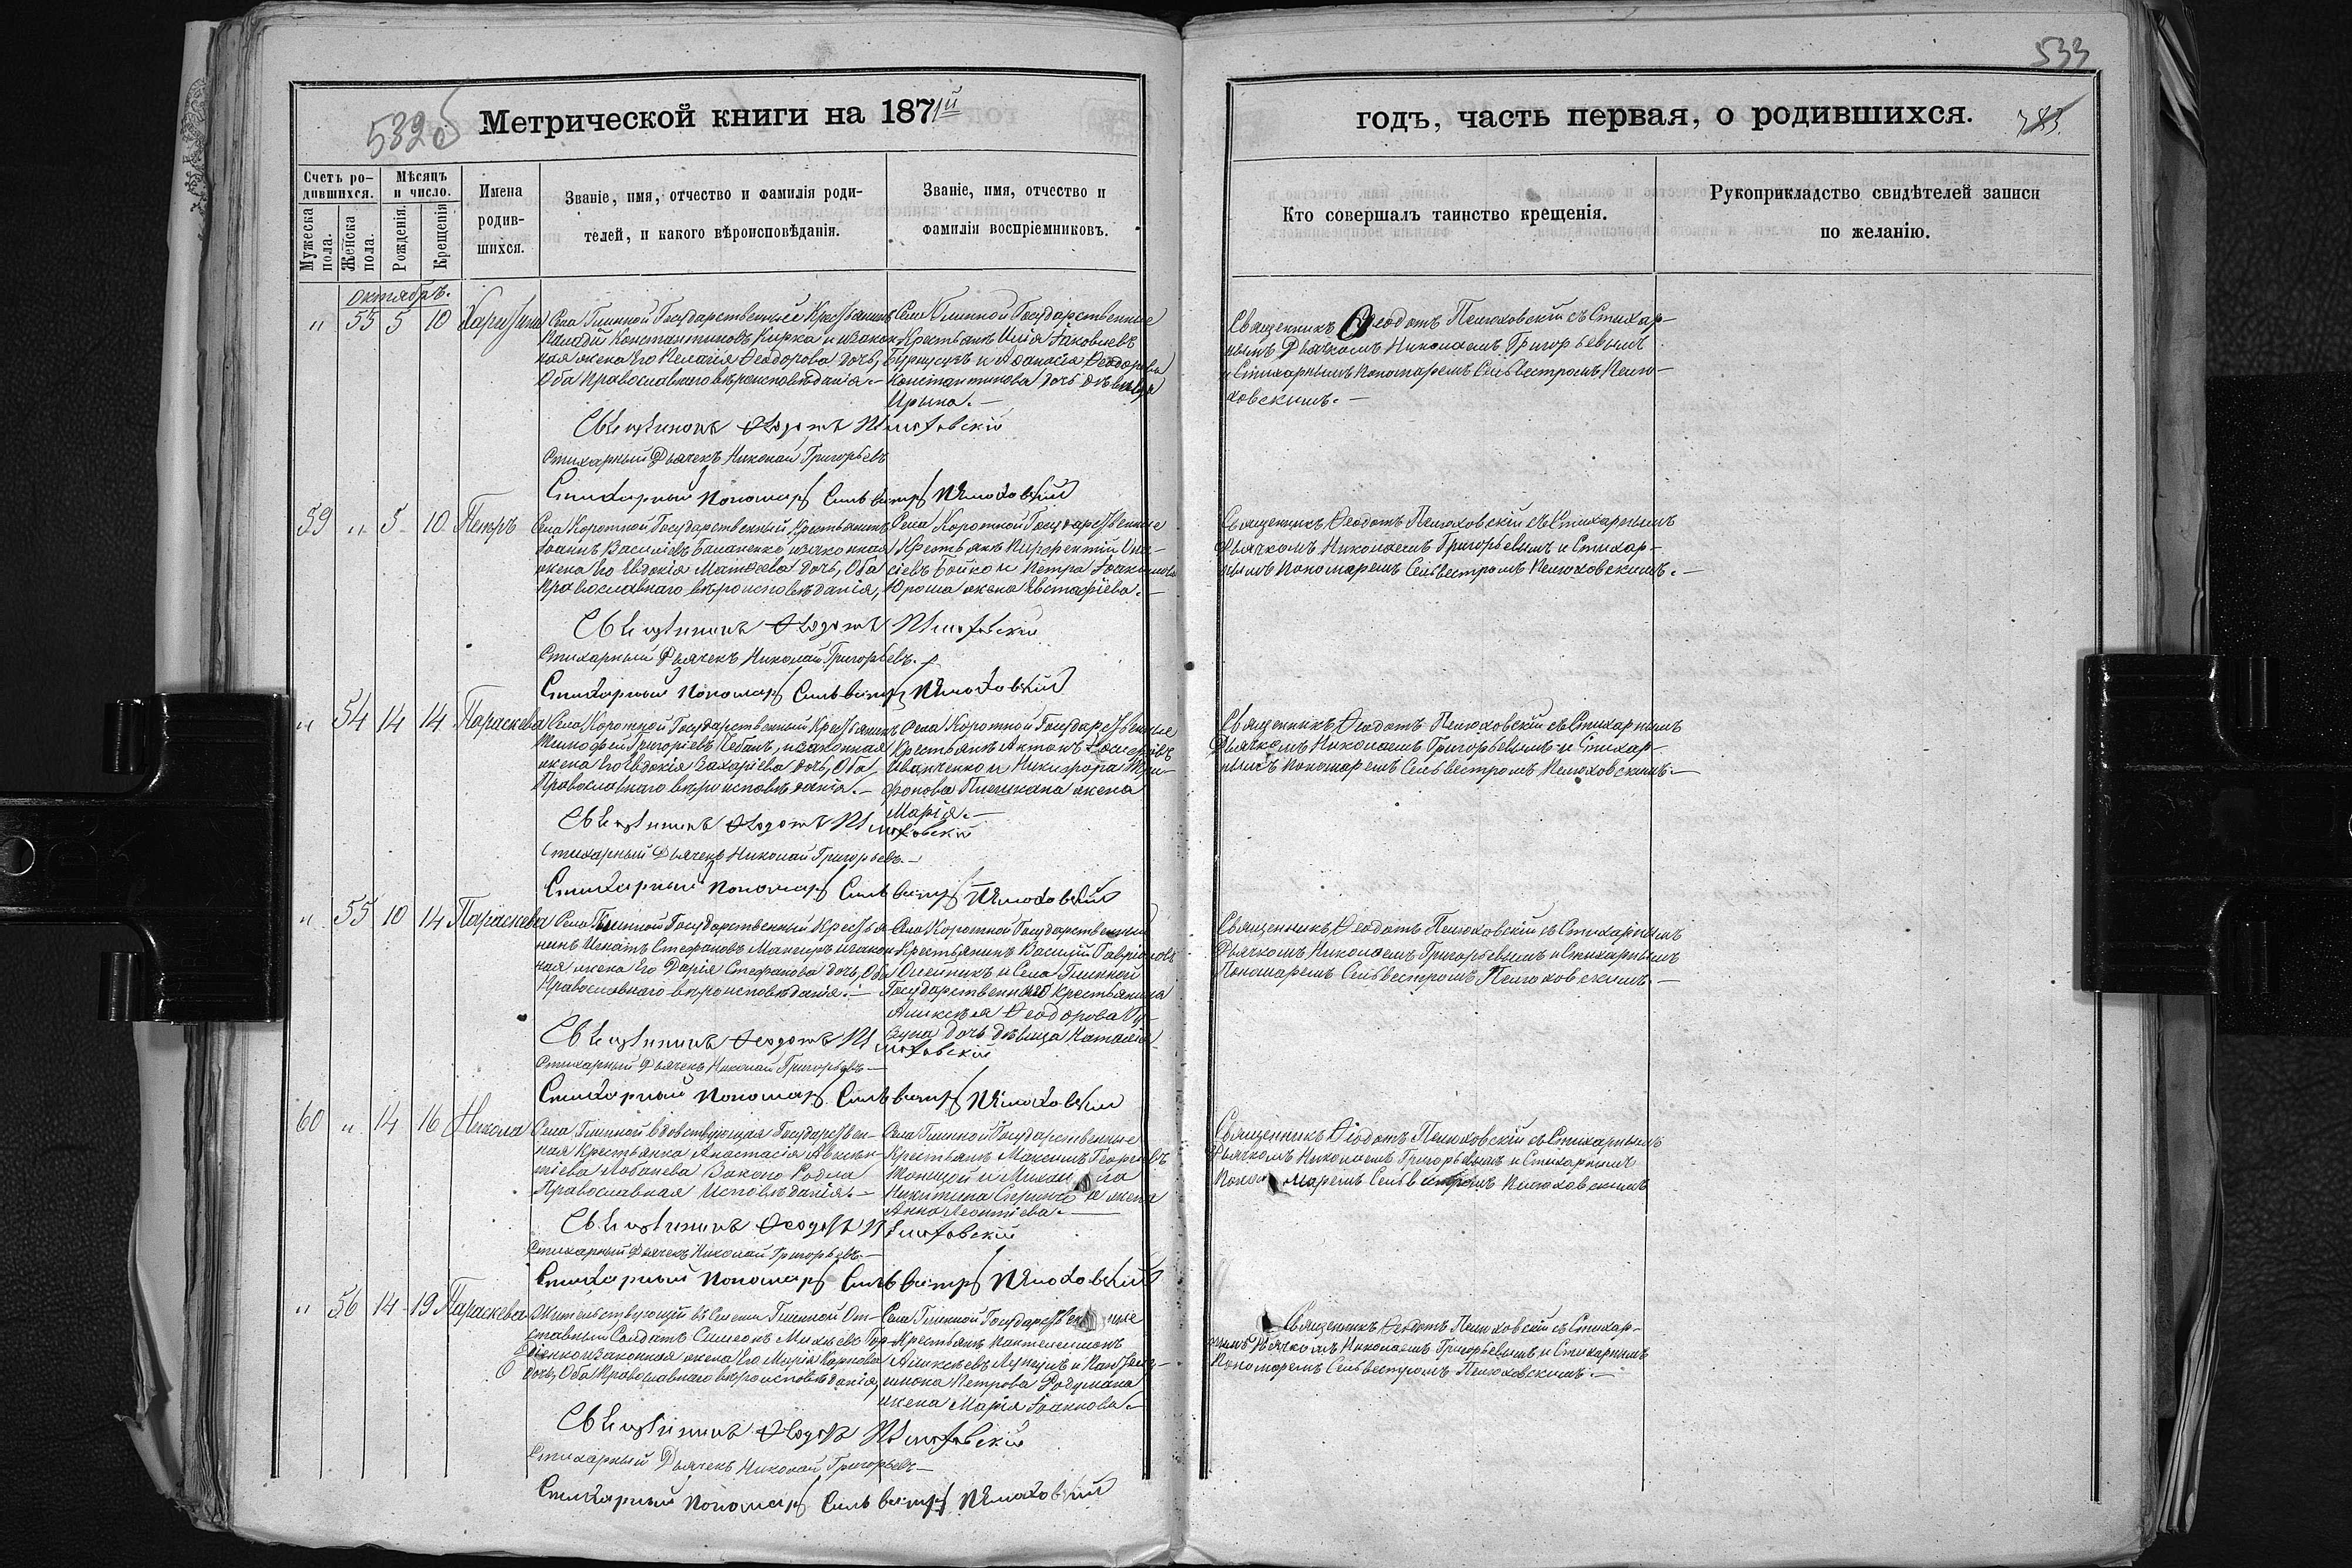 533
532 об
Метрической книги на 1871й
годъ, часть первая, о родившихся.
Счетъ ро-
дившихся.
Мѣсяцъ
и число.
Мужеска
пола.
Женска
пола.
Рожденія.
Крещенія
Имена
родив-
шихся.
Званіе, имя, отчество и фамилія роди-
телей, и какого вѣроисповѣданія.
Званіе, имя, отчество и
фамилія воспріемниковъ.
Кто совершалъ таинство крещенія.
Рукоприкладство свидѣтелей записи
по желанію.
Октябрь.
" 53 5 10 Харитина
Села Глинной Государственный Крестьянинъ
Константиновъ Кирка и закон-
ная жена Его Пелагія Ѳеодорова дочь,
Оба Православнаго вѣроисповѣданія.-
Села Глинной Государственные
Крестьяне Илія Іаковлевъ
и Аѳанасія Ѳеодорова
Константинова дочь дѣвица
Ирина.-
Священникъ Ѳеодотъ Пелюховскій съ Стихар-
нымъ Дьячкомъ Николаемъ Григорьевымъ
и Стихарнымъ Пономаремъ Сельвестромъ Пелю-
ховскимъ.-
Священникъ Ѳеодотъ Пелюховскій
Стихарный Дьячекъ Николай Григорьевъ
Стихарный Пономарь Сильвестръ Пелюховскій
59 " 5 10 Петръ
Села Коротной Государственный Крестьянинъ
Іоаннъ Василіевъ Баланенко и законная
жена Его Евдокія Матѳеева дочь, Оба
Православнаго вѣроисповѣданія,
Села Коротной Государственные
Крестьяне
Бойко и Петра Іоакимова
Юроша жена Евстафіева.-
Священникъ Ѳеодотъ Пелюховскій съ Стихарнымъ
Дьячкомъ Николаемъ Григорьевымъ и Стихар-
нымъ Пономаремъ Сельвестромъ Пелюховскимъ.-
Священникъ Ѳеодотъ Пелюховскій
Стихарный Дьячекъ Николай Григорьевъ.-
Стихарный Пономарь Сильвестръ Пелюховскій
" 54 14 14 Параскева
Села Коротной Государственный Крестьянинъ
Тимофей Григоріевъ Чебанъ, и законная
жена Его Евдокія Захаріева дочь, Оба
Православнаго вѣроисповѣданія.-
Села Коротной Государственные
Крестьяне Антонъ
Иванченко и Никифора Три-
фонова Плешкана жена
Марія.-
Священникъ Ѳеодотъ Пелюховскій съ Стихарнымъ
Дьячкомъ Николаемъ Григорьевымъ и Стихар-
нымъ Пономаремъ Сельвестромъ Пелюховскимъ.-
Священникъ Ѳеодотъ Пелюховскій
Стихарный Дьячекъ Николай Григорьевъ.-
Стихарный Пономарь Сильвестръ Пелюховскій
" 55 10 14 Параскева
Села Глинной Государственный Крестья-
нинъ Игнатъ Стефановъ и закон-
ная жена Его Дарія Стефанова дочь, Оба
Православнаго вѣроисповѣданія.-
Села Коротной Государственный
Крестьянинъ Василій Гавріиловъ
Олейникъ и Села Глинной
Государственнаго Крестьянина
Алексѣя Ѳеодорова
дочь дѣвица Наталія
Священникъ Ѳеодотъ Пелюховскій съ Стихарнымъ
Дьячкомъ Николаемъ Григорьевымъ и Стихарнымъ
Пономаремъ Сельвестромъ Пелюховскимъ.-
Священникъ Ѳеодотъ Пелюховскій
Стихарный Дьячекъ Николай Григорьевъ-
Стихарный Пономарь Сильвестръ Пелюховскій
60 " 14 16 Никола
Села Глинной вдовствующая Государствен-
ная Крестьянка Анастасія Авксен-
тіева Лобачева
Православная Исповѣданія.-
Села Глинной Государственные
Крестьяне Максимъ Георгіевъ
и Михаила
Никитина жена
Анна Леонтіева.-
Священникъ Ѳеодотъ Пелюховскій съ Стихарнымъ
Дьячкомъ Николаемъ Григорьевымъ и Стихарнымъ
Пономаремъ Сельвестромъ Пелюховскимъ
Священникъ Ѳеодотъ Пелюховскій
Стихарный Дьячекъ Николай Григорьевъ.-
Стихарный Пономарь Сильвестръ Пелюховскій
" 56 14 19 Параскева
Жительствующій въ Селеніи Глинной От-
ставный Солдатъ Симеонъ Михѣевъ Гор-
діенко и Законная жена Его Марія Карпова
дочь, Оба Православнаго вѣроисповѣданія,
Села Глинной Государственные
Крестьяне Пантелеимонъ
Алексѣевъ Лупулъ и Пантеле-
имона Петрова
жена Марія Іоаннова.-
Священникъ Ѳеодотъ Пелюховскій съ Стихар-
нымъ Дьячкомъ Николаемъ Григорьевымъ и Стихарнымъ
Пономаремъ Сельвестромъ Пелюховскимъ.-
Священникъ Ѳеодотъ Пелюховскій
Стихарный Дьячекъ Николай Григорьевъ-
Стихарный Пономарь Сильвестръ Пелюховскій